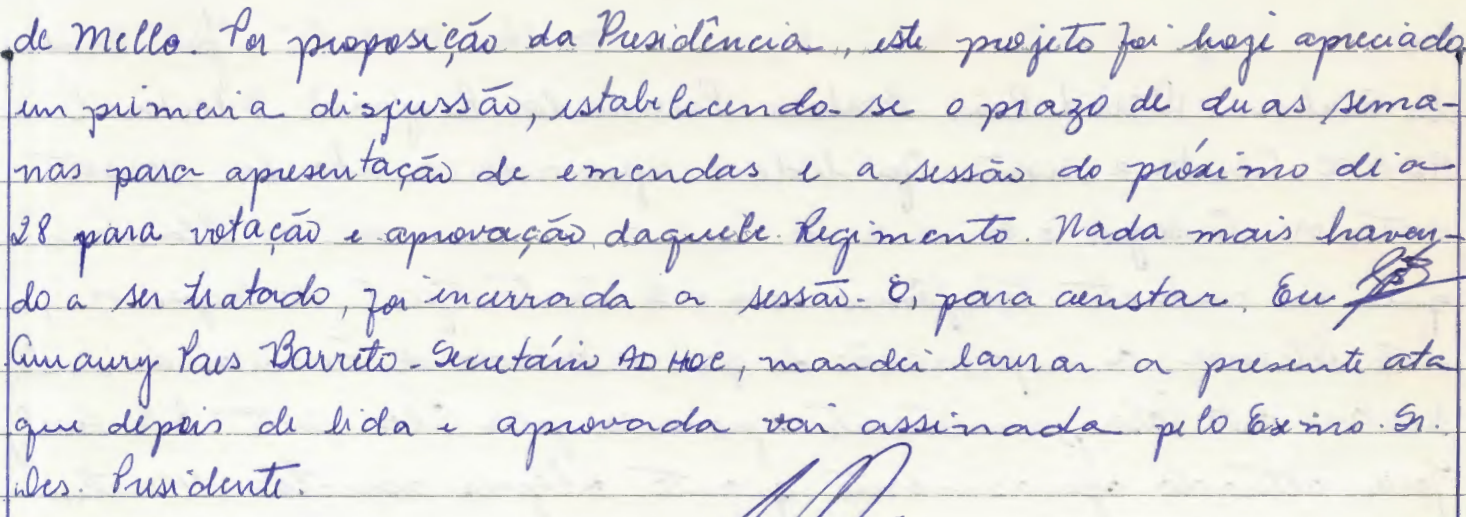 de Mello. Por proposição da Presidência, este projeto foi hoje apreciado
em primeira discussão, estabelecendo-se o prazo de duas sema-
nas para apresentação de emendas e a sessão do próximo dia
28 para votação e aprovação daquele Regimento. Nada mais haven-
do a ser tratado, foi encerrada a sessão. E, para constar. Eu
Amaury Paes Barreto - Secretário AD HOC, mandei lavrar a presente ata
que depois de lida e aprovada vai assinada pelo Exmo. Sr.
Des. Presidente.